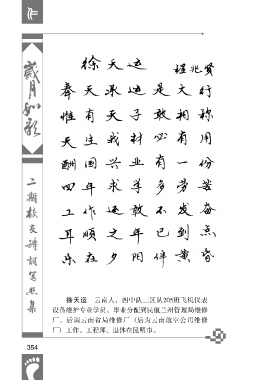 歲月如歌
二期校友诗词写照集
徐天运
奉天承运是大行
惟有天子敢相称
天生我材必有用
酬国兴业有一份
四年求学多劳苦
工作敢不发奋
耳顺之年已到点
乐在夕阳伴黄昏
徐天运　云南人，四中队二区队205班飞机仪表
设备维护专业学员。毕业分配到民航兰州管理局维修
厂，后调云南省局维修厂（后为云南航空公司维修
厂）工作。工程师。退休在昆明市。
354